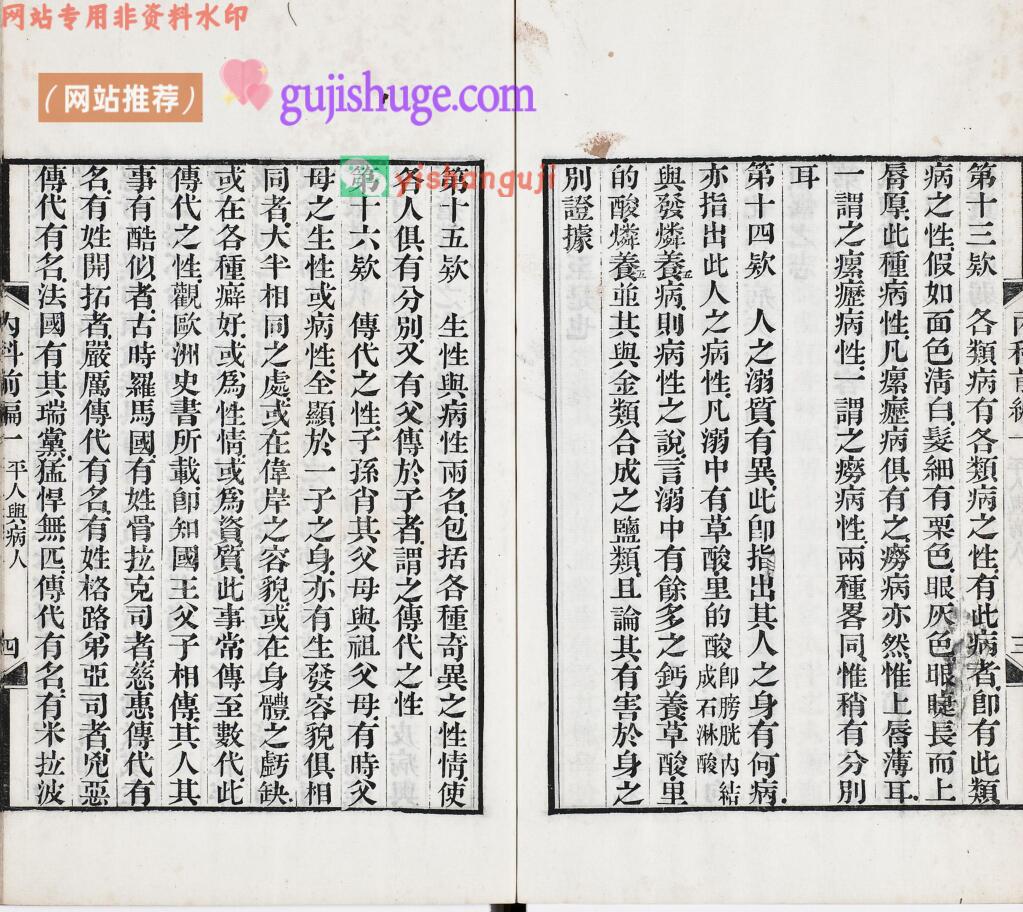 网站专用非资料水印
（网站推荐）
gujishuge.com
yishanguji
第十三欵　各類病有各類病之性、有此病者、卽有此類
病之性、假如面色淸白、髮細有栗色、眼灰色、眼睫長而上
唇厚、此種病性、凡瘰癧病俱有之、癆病亦然、惟上唇薄耳、
一謂之瘰癧病性、一謂之癆病性、兩種畧同、惟稍有分別
耳
第十四欵　人之溺質有異、此卽指出其人之身有何病、
亦指出此人之病性、凡溺中有草酸、里的酸卽膀胱內結成石淋酸
與發燐養五病、則病性之說、言溺中有餘多之鈣養草酸里
的酸燐養五並其與金類合成之鹽類、且論其有害於身之
別證據
三
第十五欵　生性與病性兩名、包括各種奇異之性情、使
各人俱有分別、又有父傳於子者、謂之傳代之性
第十六欵　傳代之性、子孫肖其父母與祖父母、有時父
母之生性或病性全顯於一子之身、亦有生發容貌俱相
同者、大半相同之處、或在偉岸之容貌、或在身體之虧缺、
或在各種癖好、或爲性情、或爲資質、此事常傳至數代、此
傳代之性、觀歐洲史書所載卽知國王父子相傳、其人其
事有酷似者、古時羅馬國、有姓骨拉克司者、慈惠傳代有
名、有姓開拓者、嚴厲傳代有名、有姓格路弟亞司者、兇惡
傳代有名、法國有其瑞黨、猛悍無匹、傳代有名、有米拉波
內科前編一　平人與病人　四